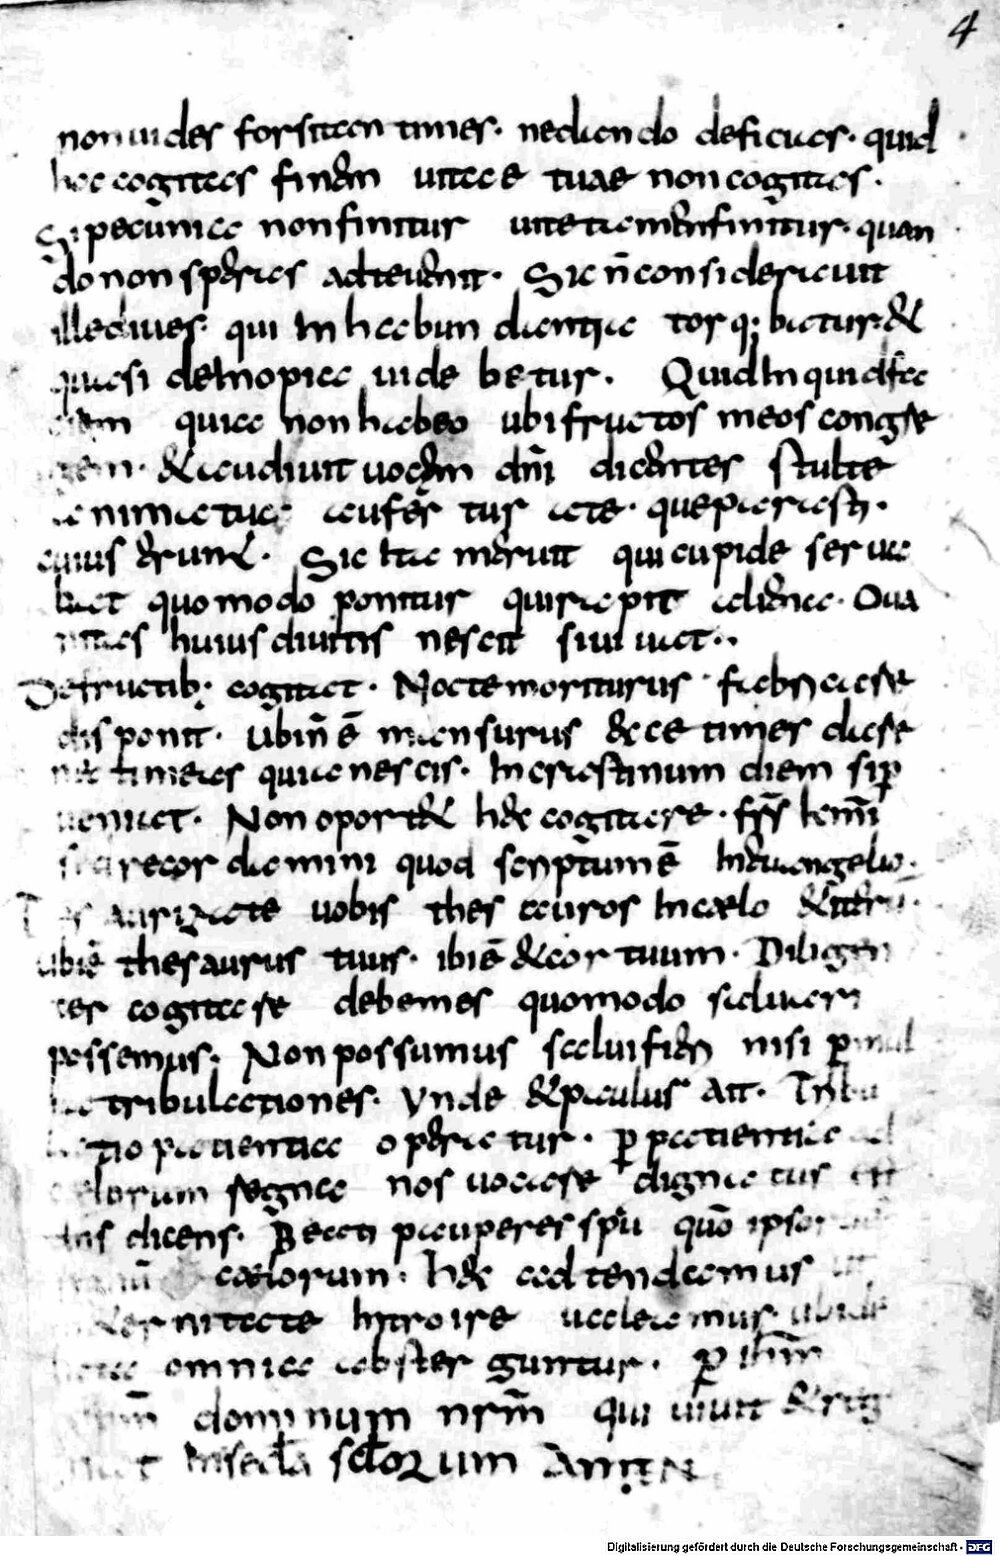 4
non uides forsitan times. ne diendo deficias. quid
hoc cogitas finem uitae tuae non cogitas.
Si pecunia non finitur uita tamen finitur. quan
do non speras ad te uenit. Sic n̄ considerauit
ille diues. qui in habundantia torq; batur. &
quasi de inopia uidebatur. Quid inquid fac
quia non habeo ubi fructos meos congre
& audiuit uocem dn̄i dicentes stulte
anima tua aufertur a te. que parasti.
cuius erunt. Sic hic meruit qui cupide serua
quomodo ponitur qui rapit aliena. Qua
huius diuitis nescit si uiuat..
De fructib; cogitat. Nocte moriturus fabricare
disponit. Ubi n̄ ē mansurus & ce times diese
times quia nescis. In crastinum diem si ꝑ
ueniat. Non oport& haec cogitare. frs̄ kmi
recordamini quod scriptum ē In euangelio.
uobis thesauros In caelo
ubi ē thesaurus tuus. ibi ē & cor tuum. Diligen
ter cogitare debemes quomodo saluari
possemus. Non possumus salui fieri nisi ꝑ mul
tribulationes. Unde & paulus Ait. Tribu
patientia operatur. ꝑ patientia
celorum regna nos uocare dignatus
dicens. Beati pauperes spū quō ipsor
caelorum. haec adtendamus
aeternitate Introire ualeamus ubi
omnia absterguntur. ꝑ ihm̄
dominum nrm̄ qui uiuit & reg
In secla sclorum Amen
Digitalisierung gefördert durch die Deutsche Forschungsgemeinschaft - DFG